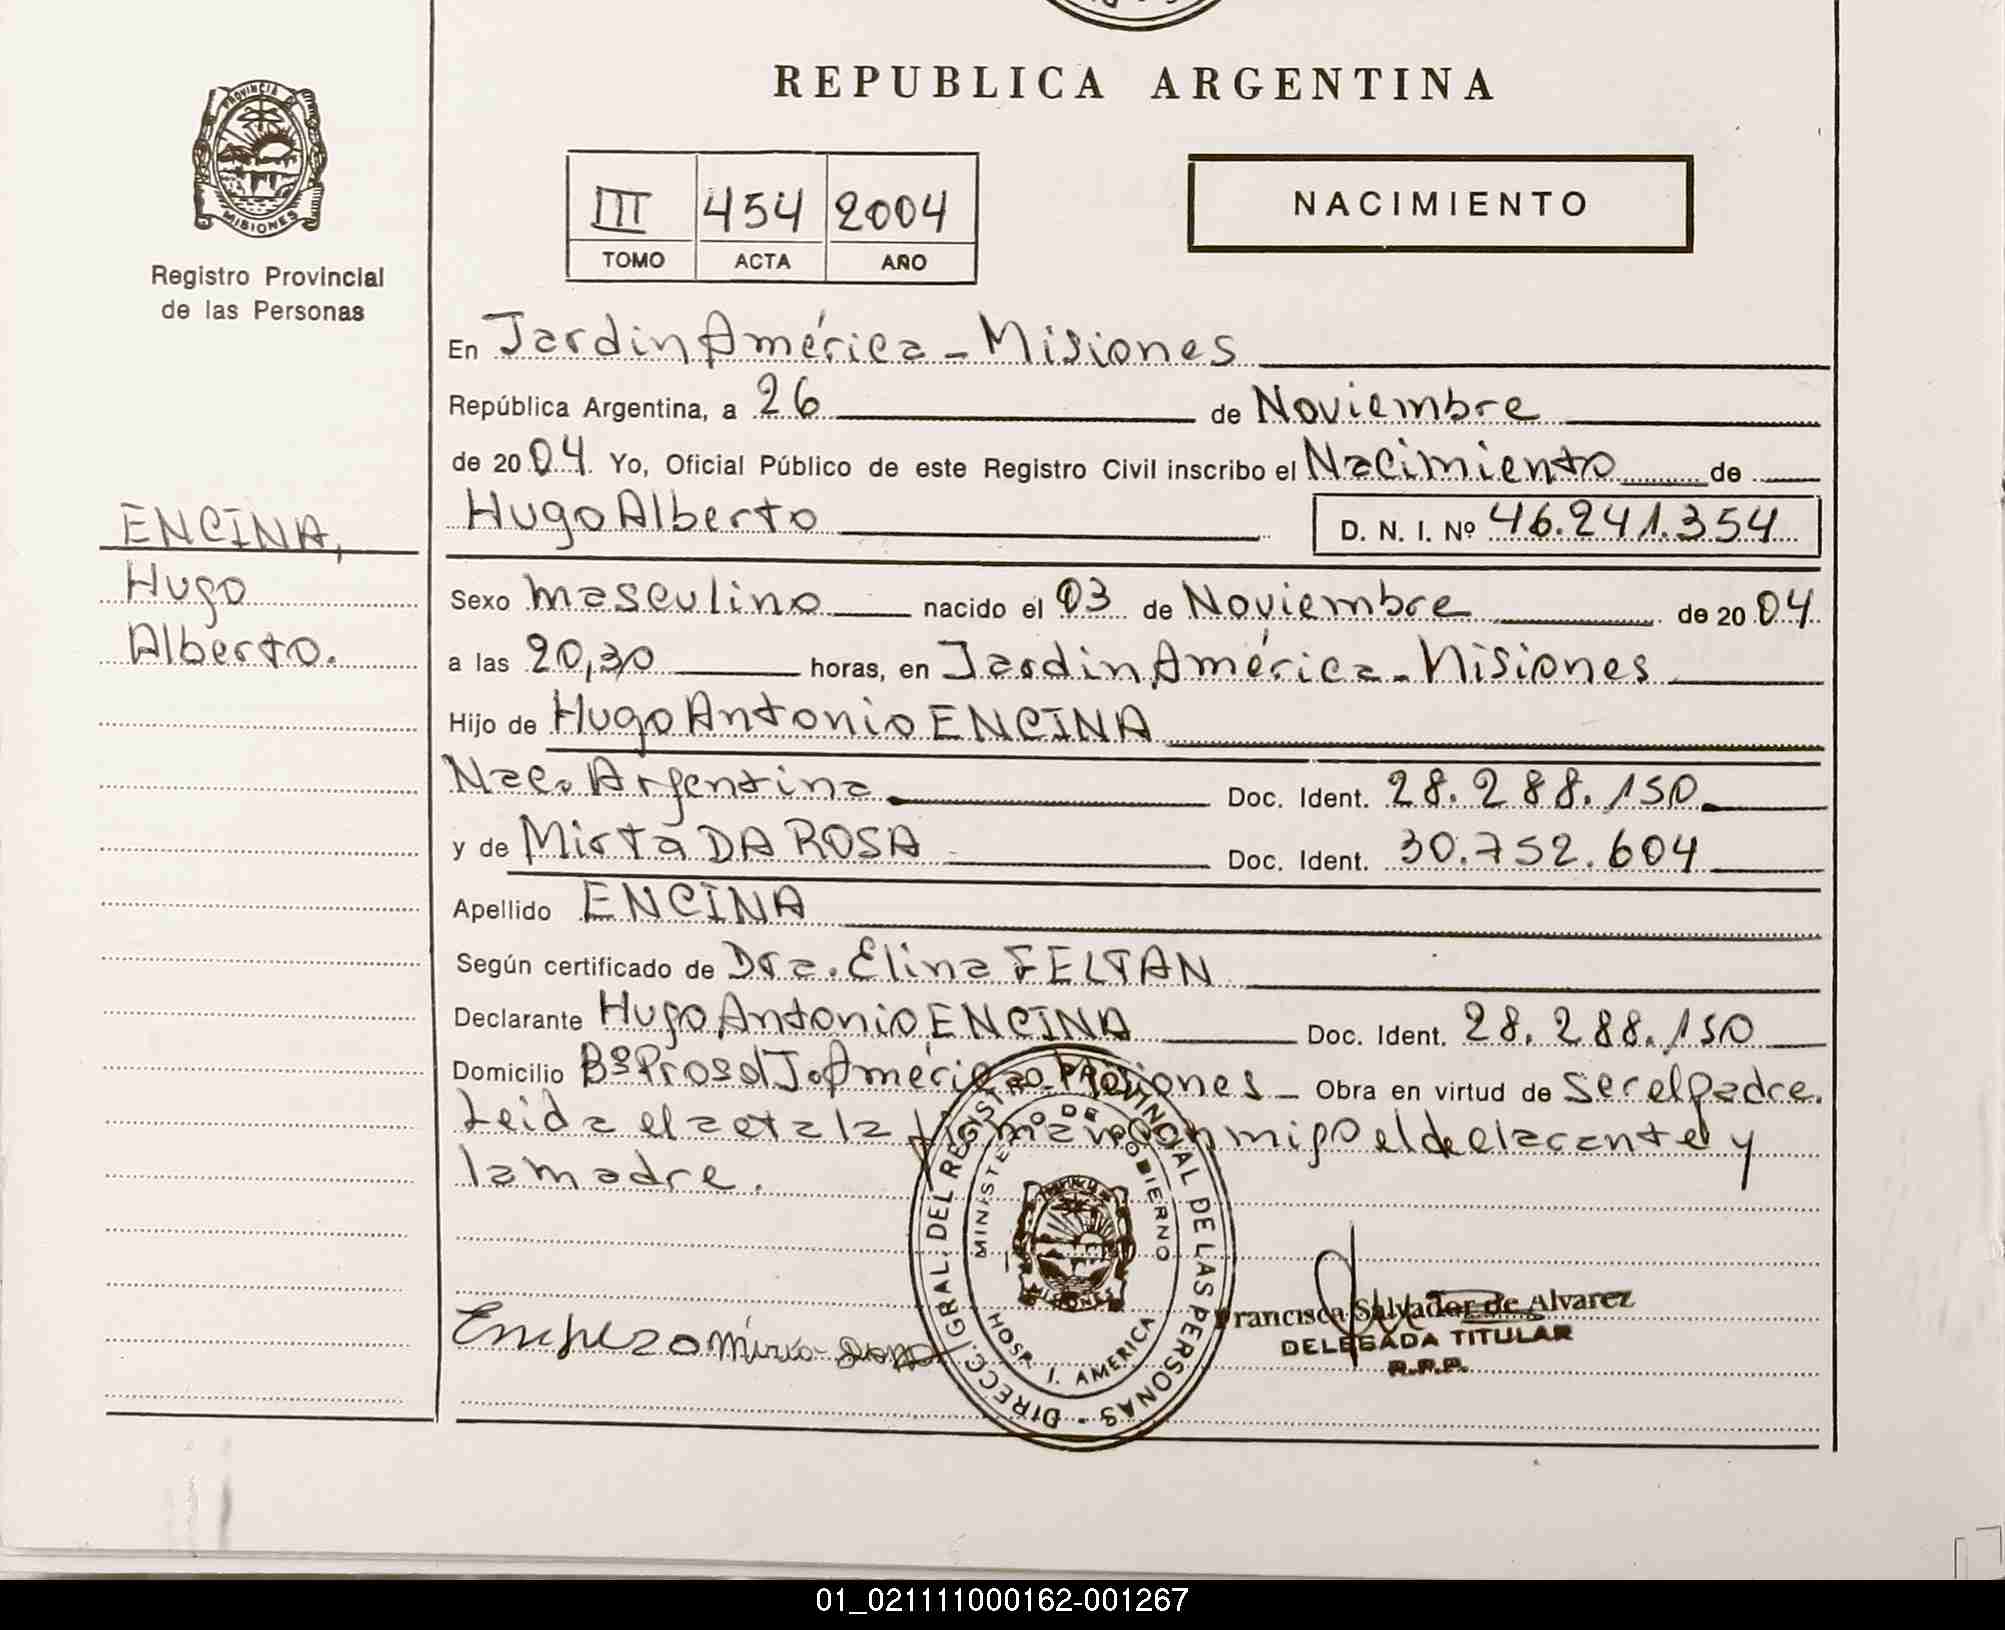 REPUBLICA ARGENTINA
PROVINCIA DE
MISIONES
Registro Provincial
de las Personas
III 454 2004
TOMO ACTA AÑO
NACIMIENTO
ENCINA,
Hugo
Alberto.
En Jardin América - Misiones
República Argentina, a 26 de Noviembre
de 2004. Yo, Oficial Público de este Registro Civil inscribo el Nacimiento de
Hugo Alberto D. N. I. Nº 46.241.354
Sexo masculino nacido el 03 de Noviembre de 2004
a las 20,30 horas, en Jardin América - Misiones
Hijo de Hugo Antonio ENCINA
Nac. Argentina Doc. Ident. 28.288.150
y de Mirta DA ROSA Doc. Ident. 30.752.604
Apellido ENCINA
Según certificado de Dra. Elina FELTAN
Declarante Hugo Antonio ENCINA Doc. Ident. 28.288.150
Domicilio Bº Prosol J. América - Misiones - Obra en virtud de ser el padre.
Leida el acta la firman conmigo el declarante y
la madre.
DIRECC. GRAL. DEL REGISTRO PROVINCIAL DE LAS PERSONAS -
MINISTERIO DE GOBIERNO
MISIONES
HOSP. J. AMERICA
Francisca Salvador de Alvarez
DELEGADA TITULAR
R.P.P.
01_021111000162-001267